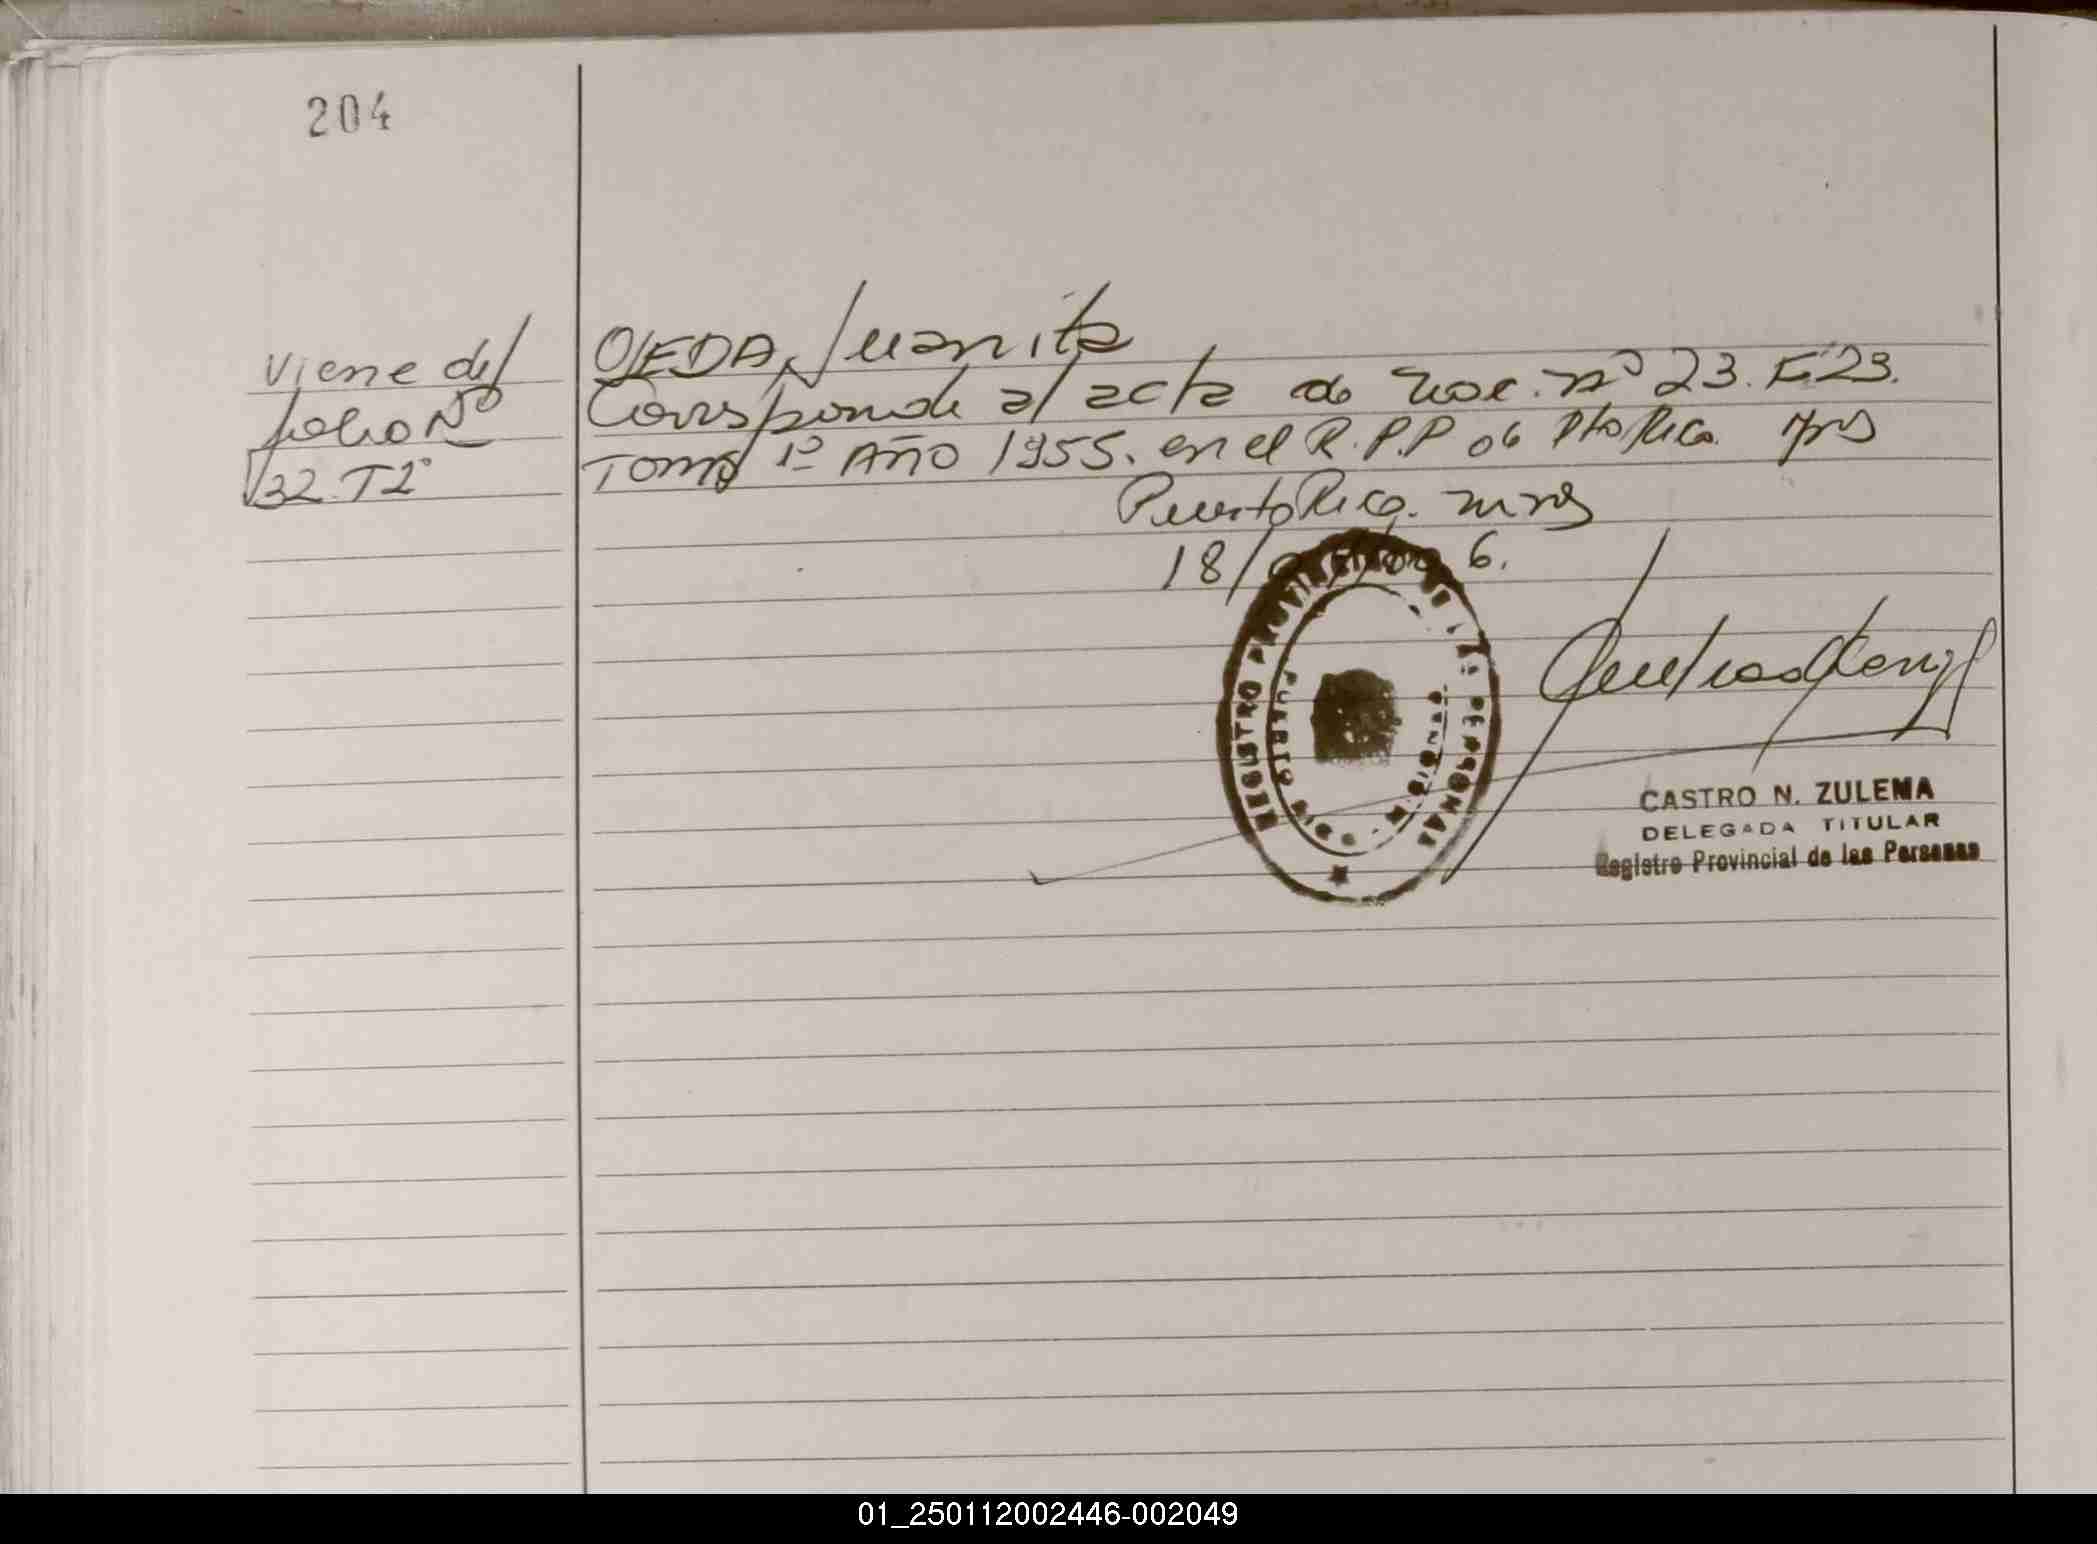 204
Viene del
folio Nº
32 T2º
OJEDA, Juanita
Corresponde al acta de nac. nº 23. F23.
Tomo 1º AÑO 1955. en el R.P.P de Pto Rico. Mns
Puerto Rico. mns
18/ 6.
REGISTRO PROVINCIAL DE LAS PERSONAS
PUERTO RICO
MISIONES
CASTRO N. ZULEMA
DELEGADA TITULAR
Registro Provincial de las Personas
01_250112002446-002049